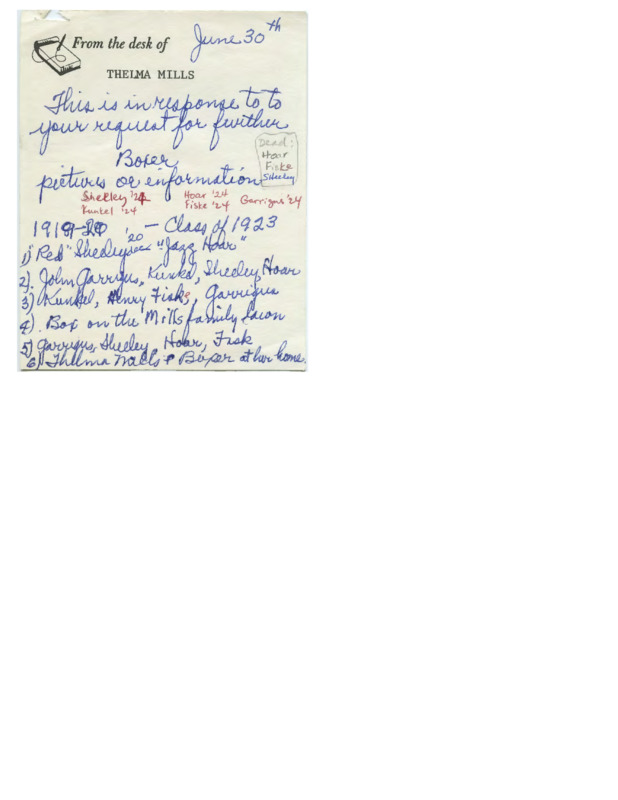 June 30th
From the desk of
THELMA MILLS
This is in response to to
your request for fewither
Boxer
pictures or information
Dead:
Hoar
Fiske
Sheeley
Sheeley '24
Kunkel '24
Hoar '24
Fiske '24
Garrigus '24
'20 — Class of 1923
1) "Red" Sheeley "Jazz Hoar"
2). John Garrigus, Kunkel, Sheeley, Hoar
3) Kunkel, Henry Fiske, Garrigus
4). Box on the Mills family lawn
5) Garrigus, Sheeley, Hoar, Fisk
6) Thelma Mills & Boxer at her home.